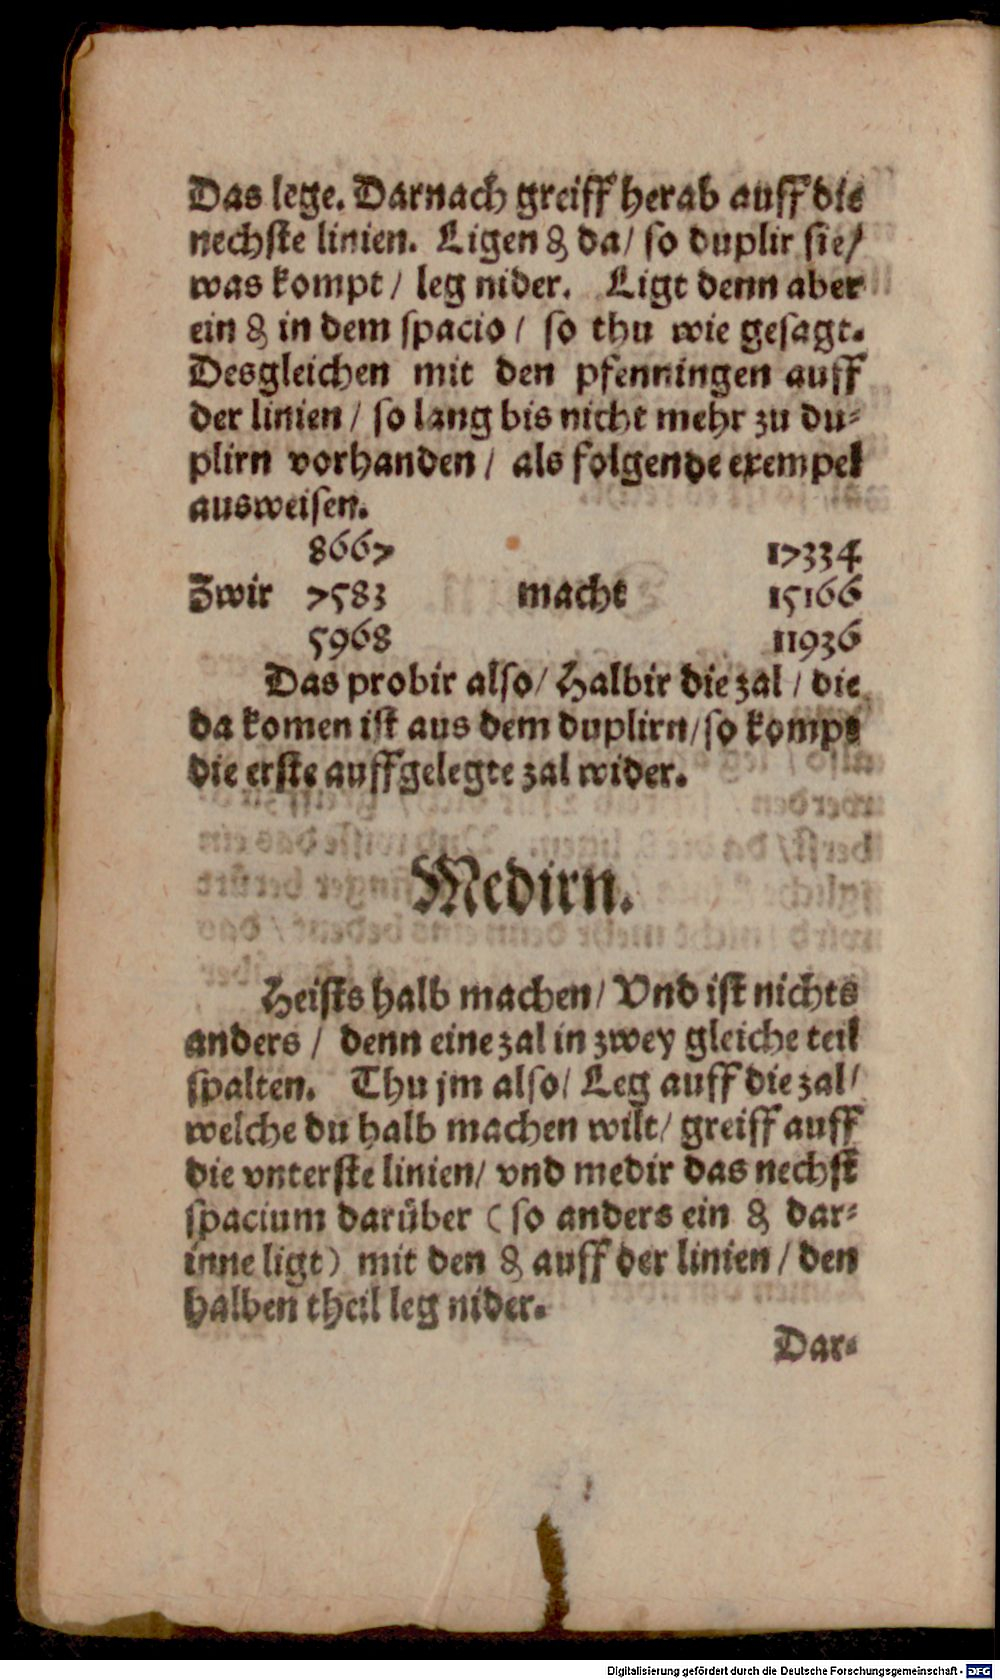 Das lege. Darnach greiff herab auff die
nechste linien. Ligen ₰ da/ so duplir sie/
was kompt/ leg nider. Ligt denn aber
ein ₰ in dem spacio/ so thu wie gesagt.
Desgleichen mit den pfenningen auff
der linien/ so lang bis nicht mehr zu du-
plirn vorhanden/ als folgende exempel
ausweisen.
8667 17334
Zwir 7583 macht 15166
5968 11936
Das probir also/ Halbir die zal/ die
da komen ist aus dem duplirn/ so kompt
die erste auffgelegte zal wider.
Medirn.
Heists halb machen/ Vnd ist nichts
anders/ denn eine zal in zwey gleiche teil
spalten. Thu jm also/ Leg auff die zal/
welche du halb machen wilt/ greiff auff
die vnterste linien/ vnd medir das nechst
spacium darüber (so anders ein ₰ dar-
inne ligt) mit den ₰ auff der linien/ den
halben theil leg nider.
Dar-
Digitalisierung gefördert durch die Deutsche Forschungsgemeinschaft - DFG